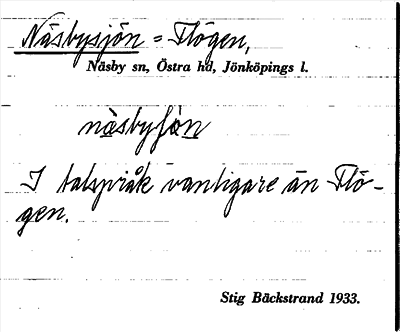 Näsbysjön = Flögen,
Näsby sn, Östra hd, Jönköpings l.
näsbyʃön
I talspråk vanligare än Flö-
gen.
Stig Bäckstrand 1933.